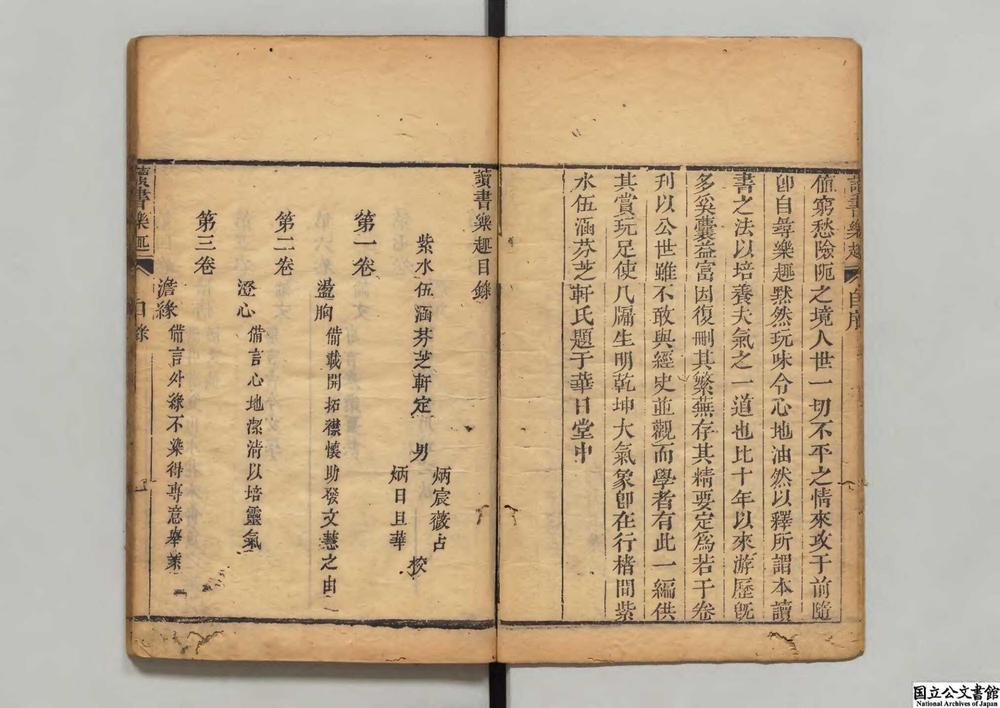 讀書樂趣 自序
値窮愁險阨之境人世一切不平之情來攻于前隨
卽自尋樂趣黙然玩味令心地油然以釋所謂本讀
書之法以培養夫氣之一道也比十年以來游歷旣
多奚囊益富因復刪其繁蕪存其精要定爲若干卷
刋以公世雖不敢與經史並觀而學者有此一編供
其賞玩足使几牖生明乾坤大氣象卽在行楮間紫
水伍涵芬芝軒氏題于華日堂中
讀書樂趣目錄
紫水伍涵芬芝軒定 男
炳宸薇占
炳日旦華
校
第一卷
盪胸 備載開拓襟懷助發文慧之由
第二卷
澄心 備言心地潔淸以培靈氣
第三卷
澹緣 備言外緣不染得專意舉業
讀書樂趣 目錄
国立公文書館
National Archives of Japan